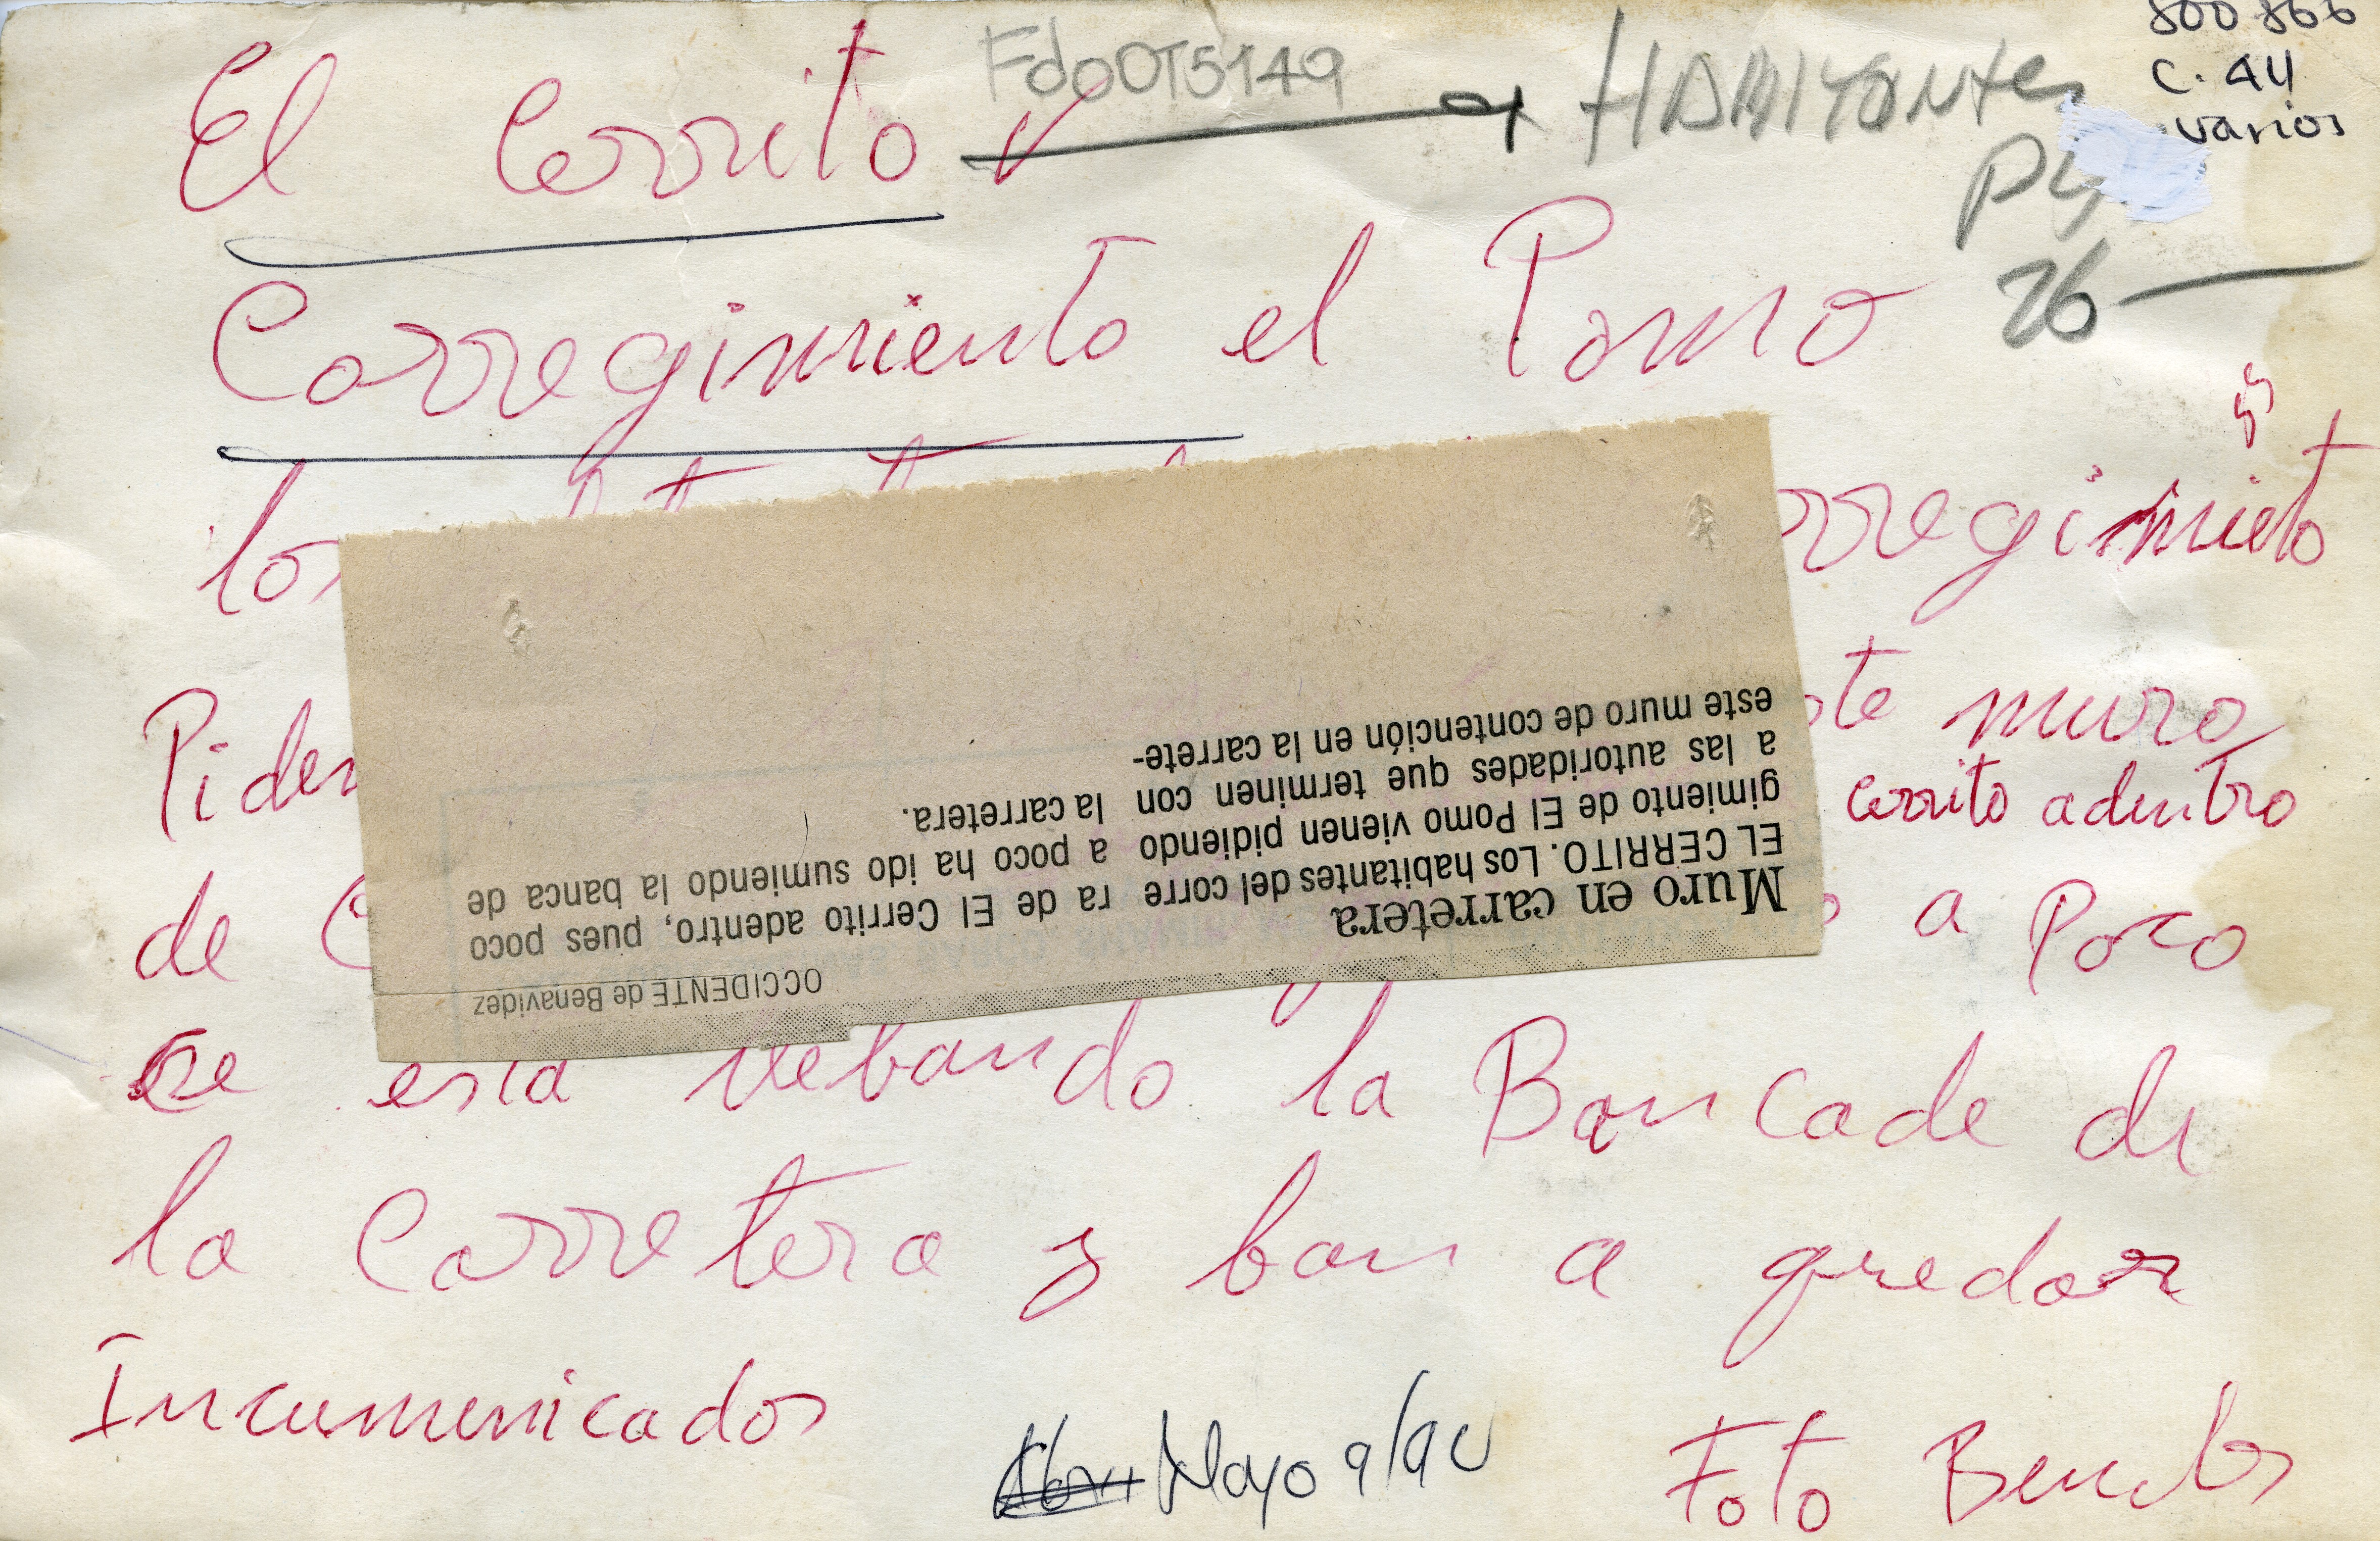 FdoOT5149
800866
C. 44
varios
El Cerrito
HABITANTES
26
Corregimiento el Pomo
los
Corregimieto
Piden
este muro
Cerrito adentro
de
a Poco
se esta llebando la Bancade de
la Carretera y ban a quedar
Incumunicados
Mayo 9/90
Foto
OCCIDENTE de Benavidez
Muro en carretera
EL CERRITO. Los habitantes del corre
gimiento de El Pomo vienen pidiendo
a las autoridades que terminen con
este muro de contención en la carrete-
ra de El Cerrito adentro, pues poco
a poco ha ido sumiendo la banca de
la carretera.